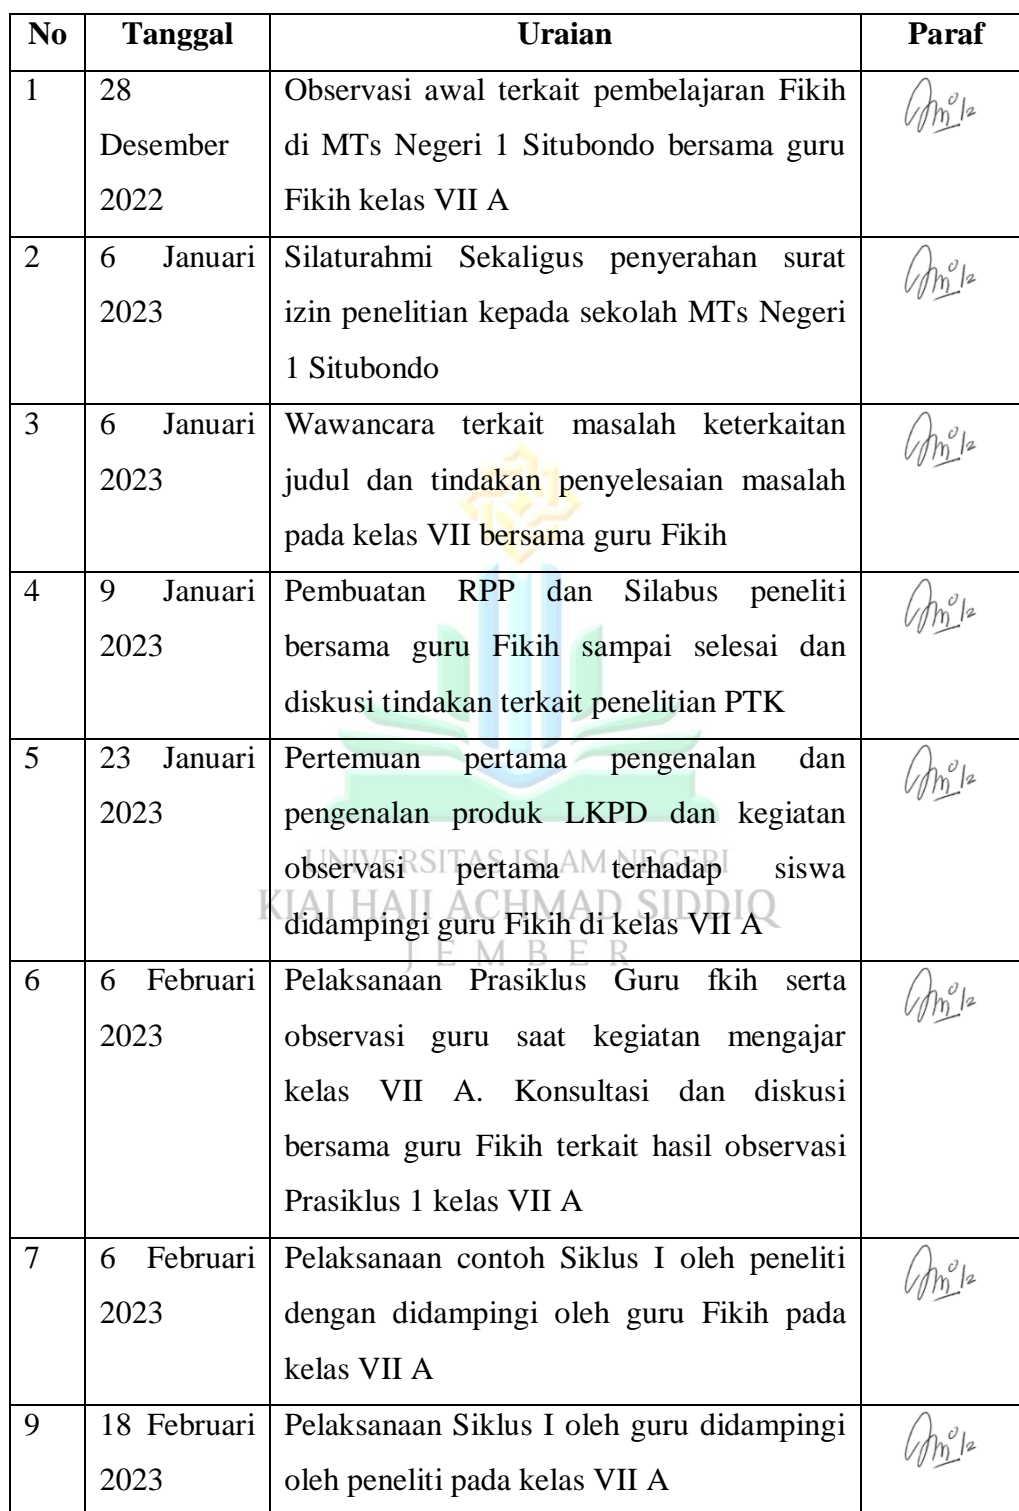 No Tanggal Uraian Paraf
1 28 Observasi awal terkait pembelajaran Fikih
Desember di MTs Negeri 1 Situbondo bersama guru
2022 Fikih kelas VII A
2 6 Januari Silaturahmi Sekaligus penyerahan surat
2023 izin penelitian kepada sekolah MTs Negeri
1 Situbondo
3 6 Januari Wawancara terkait masalah keterkaitan
2023 judul dan tindakan penyelesaian masalah
pada kelas VII bersama guru Fikih
4 9 Januari Pembuatan RPP dan Silabus peneliti
2023 bersama guru Fikih sampai selesai dan
diskusi tindakan terkait penelitian PTK
5 23 Januari Pertemuan pertama pengenalan dan
2023 pengenalan produk LKPD dan kegiatan
observasi pertama terhadap siswa
didampingi guru Fikih di kelas VII A
UNIVERSITAS ISLAM NEGERI
KIAI HAJI ACHMAD SIDDIQ
JEMBER
6 6 Februari Pelaksanaan Prasiklus Guru fkih serta
2023 observasi guru saat kegiatan mengajar
kelas VII A. Konsultasi dan diskusi
bersama guru Fikih terkait hasil observasi
Prasiklus 1 kelas VII A
7 6 Februari Pelaksanaan contoh Siklus I oleh peneliti
2023 dengan didampingi oleh guru Fikih pada
kelas VII A
9 18 Februari Pelaksanaan Siklus I oleh guru didampingi
2023 oleh peneliti pada kelas VII A